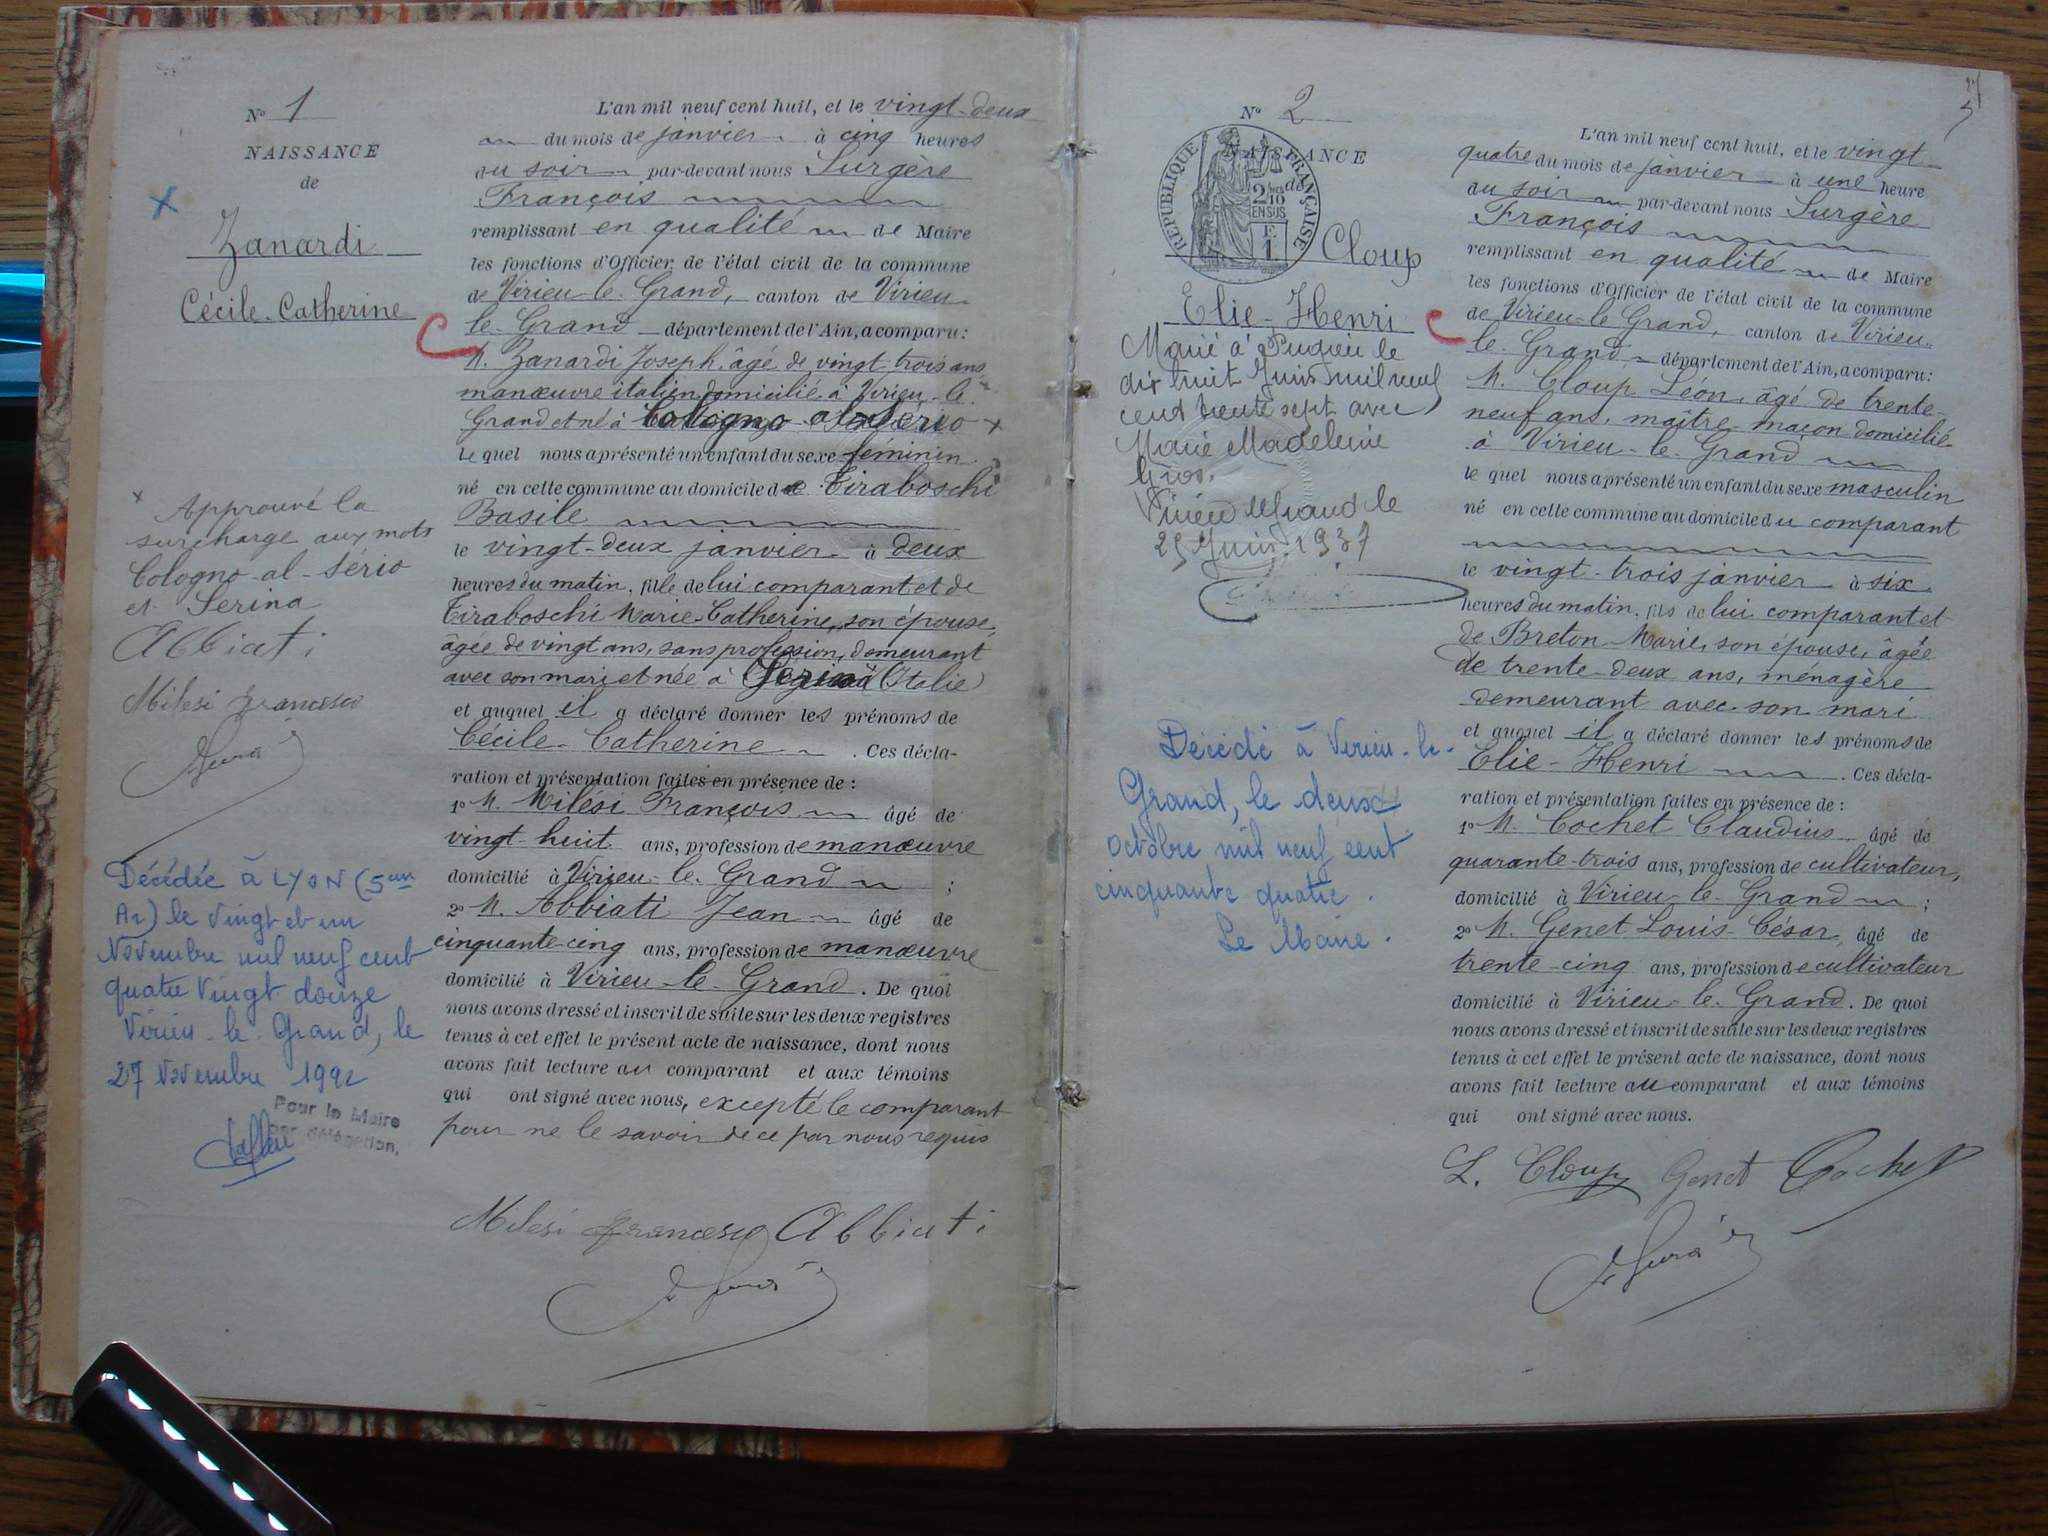 Nº 1
NAISSANCE
de
Zanardi
Cécile-Catherine
L'an mil neuf cent huit, et le vingt-deux
du mois de janvier à cinq heures
du soir par-devant nous Surgère
François
remplissant en qualité de Maire
les fonctions d'Officier de l'état civil de la commune
de Virieu-le-Grand, canton de Virieu-
le-Grand département de l'Ain, a comparu:
M. Zanardi Joseph, âgé de vingt-trois ans
manœuvre italien domicilié à Virieu-le-
Grand et né à Cologno al Sério x
le quel nous a présenté un enfant du sexe féminin
né en cette commune au domicile de Tiraboschi
Basile
le vingt-deux janvier à deux
heures du matin, fille de lui comparant et de
Tiraboschi Marie-Catherine, son épouse,
âgée de vingt ans, sans profession, demeurant
avec son mari et née à Serina (Italie)
et auquel il a déclaré donner les prénoms de
Cécile-Catherine . Ces décla-
ration et présentation faites en présence de :
1º M. Milési François âgé de
vingt-huit ans, profession de manœuvre
domicilié à Virieu-le-Grand ;
2º M. Abbiati Jean âgé de
cinquante-cinq ans, profession de manœuvre
domicilié à Virieu-le-Grand. De quoi
nous avons dressé et inscrit de suite sur les deux registres
tenus à cet effet le présent acte de naissance, dont nous
avons fait lecture au comparant et aux témoins
qui ont signé avec nous, excepté le comparant
pour ne le savoir de ce par nous requis
Milesi Francesco Abbiati
x Approuvé la
surcharge aux mots
Cologno-al-Sério
et Serina
Abbiati
Milesi Francesco
Décédée à LYON (5eme
Ar) le vingt et un
Novembre mil neuf cent
quatre vingt douze
Virieu-le-Grand, le
27 Novembre 1992
Pour le Maire
par délégation,
Nº 2
NAISSANCE
de
RÉPUBLIQUE FRANÇAISE
2 10
EN SUS
Cloup
Elie-Henri
Marié à Pugieu le
dix huit Juin mil neuf
cent trente sept avec
Marie Madeleine
Gros.
Virieu le Grand le
25 Juin 1937
Décédé à Virieu-le-
Grand, le deux
octobre mil neuf cent
cinquante quatre.
Le Maire.
L'an mil neuf cent huit, et le vingt-
quatre du mois de janvier à une heure
du soir par-devant nous Surgère
François
remplissant en qualité de Maire
les fonctions d'Officier de l'état civil de la commune
de Virieu-le-Grand, canton de Virieu-
le-Grand département de l'Ain, a comparu:
M. Cloup Léon, âgé de trente-
neuf ans, maître-maçon domicilié
à Virieu-le-Grand
le quel nous a présenté un enfant du sexe masculin
né en cette commune au domicile du comparant
le vingt-trois janvier à six
heures du matin, fils de lui comparant et
de Breton Marie, son épouse, âgée
de trente-deux ans, ménagère
demeurant avec son mari
et auquel il a déclaré donner les prénoms de
Elie-Henri . Ces décla-
ration et présentation faites en présence de :
1º M. Cochet Claudius âgé de
quarante-trois ans, profession de cultivateur,
domicilié à Virieu-le-Grand ;
2º M. Genet Louis-César, âgé de
trente-cinq ans, profession de cultivateur
domicilié à Virieu-le-Grand. De quoi
nous avons dressé et inscrit de suite sur les deux registres
tenus à cet effet le présent acte de naissance, dont nous
avons fait lecture au comparant et aux témoins
qui ont signé avec nous.
L. Cloup Genet Cochet